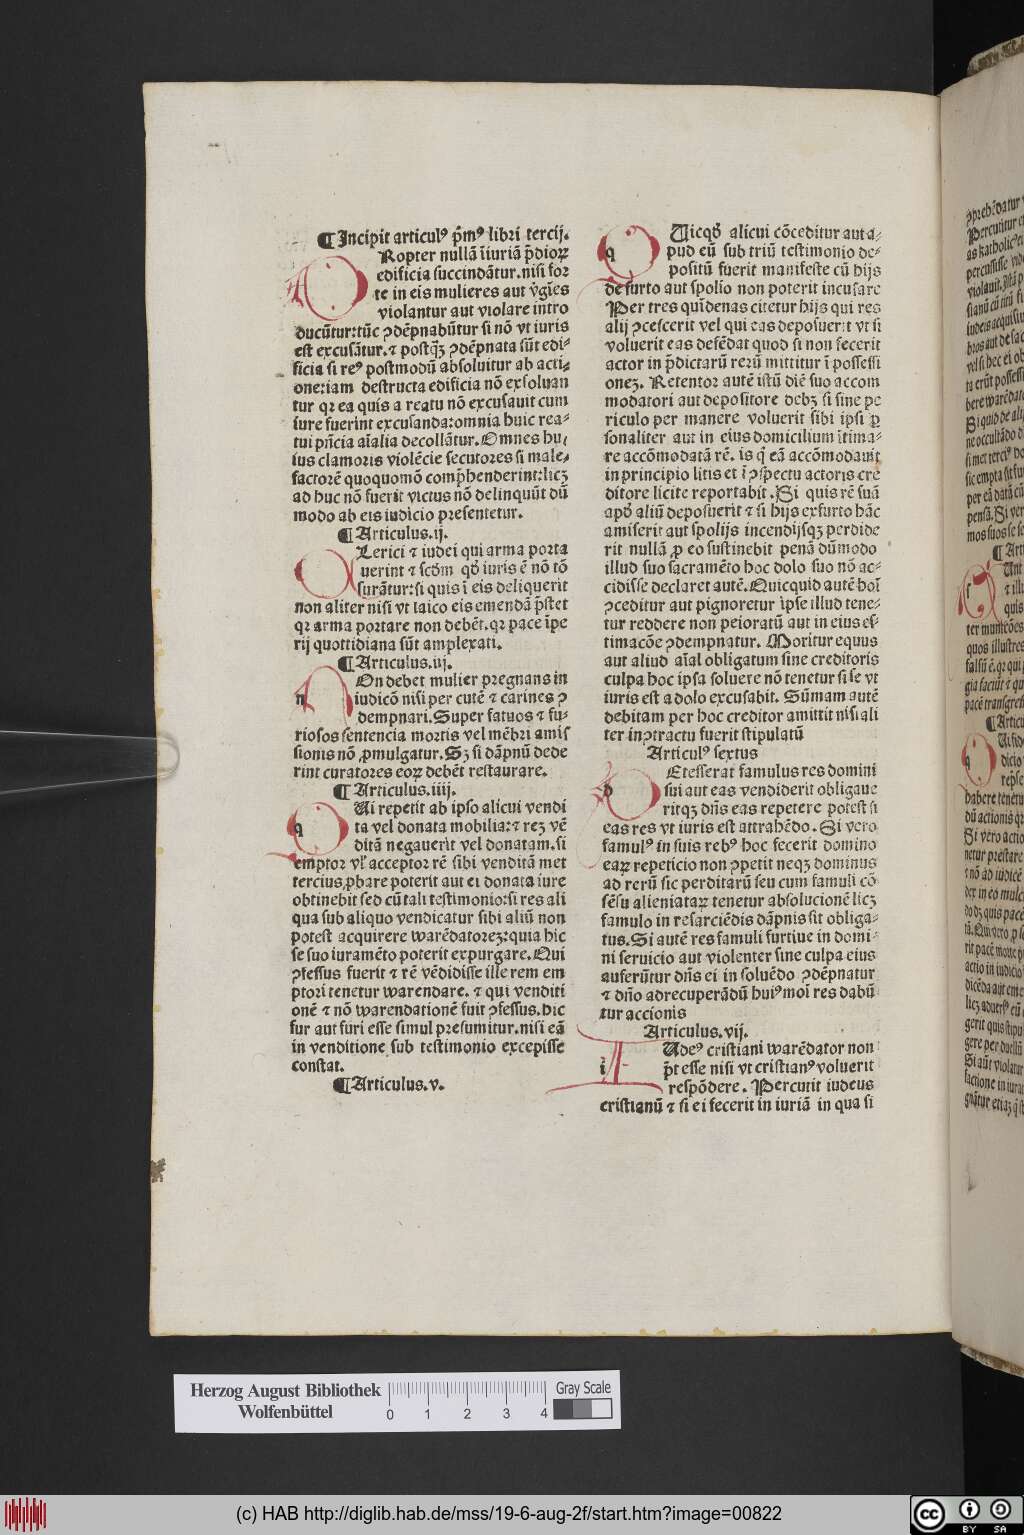 ¶ Incipit articulꝰ p̄mꝰ libri tercij.
Ropter nullā iniuriā p̄dioꝝ
edificia succindātur.nisi for
te in eis mulieres aut v̄gīes
violantur aut violare intro
ducūtur:tūc ꝯdēpnabūtur si nō vt iuris
est excusātur.⁊ postqꝫ ꝯdēpnata sūt edi-
ficia si reꝰ postmodū absoluitur ab acti-
one:iam destructa edificia nō exsoluan
tur qꝛ ea quis a reatu nō excusauit cum
iure fuerint excusanda:omnia huic rea-
tui p̄ncia aīalia decollātur.Omnes hu-
ius clamoris violēcie secutores si male-
factorē quoquomō comp̄henderint:licꝫ
ad huc nō fuerit victus nō delinquūt dū
modo ab eis iudicio presentetur.
¶ Articulus.ij.
Lerici ⁊ iudei qui arma porta
uerint ⁊ scd̄m qd̄ iuris ē nō tō
surātur:si quis ī eis deliquerit
non aliter nisi vt laico eis emendā p̄stet
qꝛ arma portare non debēt.qꝛ pace īpe
rij quottidiana sūt amplexati.
¶ Articulus.iij.
n
On debet mulier pregnans in
iudicō nisi per cutē ⁊ carines ꝯ
dempnari.Super fatuos ⁊ fu-
riosos sentencia mortis vel mēbri amis
sionis nō ꝓmulgatur.Sꝫ si dāpnū dede
rint curatores eoꝝ debēt restaurare.
¶ Articulus.iiij.
q
Ui repetit ab ipso alicui vendi
ta vel donata mobilia:⁊ reꝫ vē
ditā negauerit vel donatam.si
emptor vl̓ acceptor rē sibi venditā met
tercius ꝓbare poterit aut ei donata iure
obtinebit sed cū tali testimonio:si res ali
qua sub aliquo vendicatur sibi aliū non
potest acquirere warēdatoreꝫ:quia hic
se suo iuramēto poterit expurgare.Qui
ꝯfessus fuerit ⁊ rē vēdidisse ille rem em
ptori tenetur warendare.⁊ qui venditi
onē ⁊ nō warendationē fuit ꝯfessus.hic
fur aut furi esse simul presumitur.nisi eā
in venditione sub testimonio excepisse
constat.
¶ Articulus.v.
q
Uicqd̄ alicui cōceditur aut a-
pud eū sub triū testimonio de-
positū fuerit manifeste cū hijs
de furto aut spolio non poterit incusare
Per tres quīdenas citetur hijs qui res
alij ꝯcesserit vel qui eas deposuerit vt si
voluerit eas defēdat quod si non fecerit
actor in p̄dictarū rerū mittitur ī possessi
oneꝫ. Retentor autē istū diē suo accom
modatori aut depositore debꝫ si sine pe
riculo per manere voluerit sibi ipsi ꝑ
sonaliter aut in eius domicilium ītima-
re accōmodatā rē. is q̄ eā accōmodauit
in principio litis et ī ꝯspectu actoris cre
ditore licite reportabit.Si quis rē suā
apd̄ aliū deposuerit ⁊ si hijs exfurto hāc
amiserit aut spolijs incendijsqꝫ perdide
rit nullā ꝓ eo sustinebit penā dūmodo
illud suo sacramēto hoc dolo suo nō ac-
cidisse declaret autē.Quicquid autē hoī
ꝯceditur aut pignoretur ipse illud tene-
tur reddere non peioratū aut in eius es-
timacōe ꝯdempnatur. Moritur equus
aut aliud aīal obligatum sine creditoris
culpa hoc ipsa soluere nō tenetur si se vt
iuris est a dolo excusabit. Sūmam autē
debitam per hoc creditor amittit nisi ali
ter inꝯtractu fuerit stipulatū
Articulꝰ sextus
d
Etesserat famulus res domini
sui aut eas vendiderit obligaue
ritqꝫ dn̄s eas repetere potest si
eas res vt iuris est attrahēdo.Si vero
famulꝰ in suis rebꝰ hoc fecerit domino
eaꝝ repeticio non ꝯpetit neqꝫ dominus
ad rerū sic perditarū seu cum famuli cō
sēsu alieniataꝝ tenetur absolucionē licꝫ
famulo in resarciēdis dāpnis sit obliga-
tus.Si autē res famuli furtiue in domi-
ni seruicio aut violenter sine culpa eius
auferūtur dn̄s ei in soluēdo ꝯdēpnatur
⁊ dn̄o adrecuperādū huiꝰmoī res dabū
tur accionis
Articulus.vij.
i
Udeꝰ cristiani warēdator non
p̄t esse nisi vt cristianꝰ voluerit
respōdere. Percutit iudeus
cristianū ⁊ si ei fecerit in iuriā in qua si
Herzog August Bibliothek
Wolfenbüttel
0 1 2 3 4
Gray Scale
(c) HAB http://diglib.hab.de/mss/19-6-aug-2f/start.htm?image=00822
cc BY SA